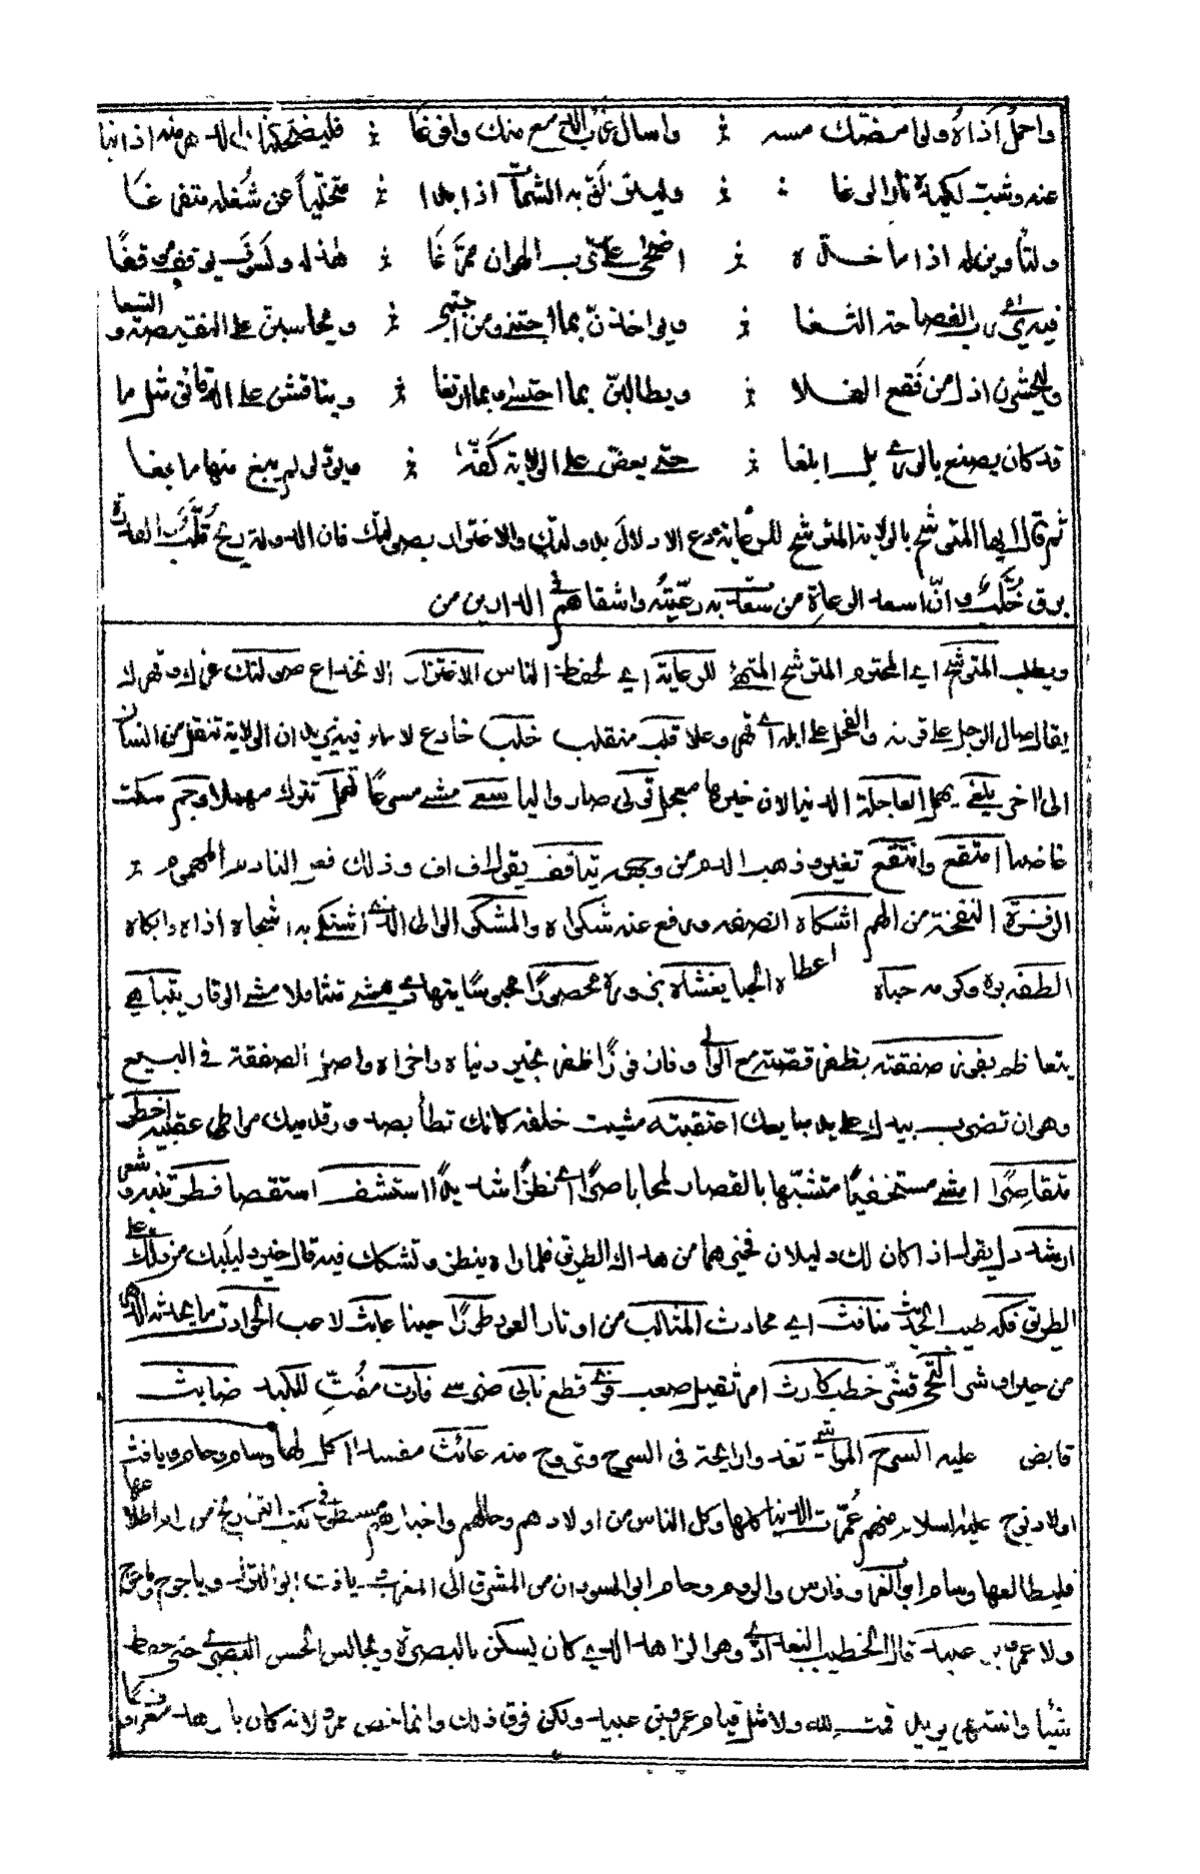 واحمل أذاه ولو امضك مسه ؞ واسال غرب الدمع منك وافرغا ؞ فليضحكنك الدهر منه اذا نبا
عنه وشب لكيده نار الوغا ؞ ولينزلن به الشمات اذا بدا ؞ متخليا عن شغله متفرغا
ولتأوين له اذا ما خده ؞ اضحى على ترب الهوان ممرغا ؞ هذا له ولسوف يوقف موقفا
فيه يرى رب الفصاحة الثغا ؞ ويواخذن بما اجتنى ومن اجتبى ؞ ويحاسبن على النقيصة والشغا
وليحشرن اذل من فقع الفلا ؞ ويطالبن بما احتسى وبما ارتغا ؞ ويناقشن على الدقائق مثل ما
قد كان يصنع بالورى بل ابلغا ؞ حتى يعض على الولاية كفه ؞ ويود لو لم يبغ منها ما بغا
ثم قال ايها المتوشح بالولاية المترشح للرعاية دع الادلال بدولتك والاغترار بصولتك فان الدولة ريح قلب والقدرة
برق خلب وان اسعد الرعاة من سعدت به رعيته واشقاهم في الدارين من
ويطلب المتوشح اي المحترم المترشح المتهيئ للرعاية اي لحفظ الناس الاغترار الانخداع صولتك عزك وقهرك
يقال صال الرجل على قرنه والفحل على ابله اي قهر وعلا قلب متقلب خلب خادع لا ماء فيه يريد ان الولاية تنتقل من انسان
الى اخر يلغي يهمل العاجلة الدنيا لان خيرها معجل تولى صار واليا سعى مشى مسرعا تهمل تترك مهملا وجم سكت
غاضبا امتقع وانتقع تغير وذهب الدم من وجهه يتافف يقول اف اف وذلك فعل النادم المهموم ؞
الزفرة النفخة من الهم اشكاه انصفه ورفع عنه شكواه والمشكو الوالي الذي اشتكي به اشجاه اذاه وابكاه
الطفه بره وكرمه حباه اعطاه الحبا يغشاه يزوره محصورا محبوسا يتهادى يمشي متثاقلا مشي الوقار يتباهى
يتعاظم بفوز صفقته بظفر قصته مع الوالي وفاز فوزا ظفر بخير دنياه واخراه واصل الصفقة في البيع
وهو ان تضرب بيدك على يد مبايعك اعتقبته مشيت خلفه كانك تطأ بصدور قدميك مواطئ عقبيه اخطو
متقاصرا امشي مستخفيا متشبها بالقصار لمحا باصرا اي نظرا شديدا استشف استقصا فطق تيقن وشعر
ارشد دل يقول اذا كان لك دليلان فخيرهما من هداك الطريق فلما راه ينظر وتشكك فيه قال خير دليليك من دلك على
الطريق فكه طيب الحديث منافث اي محادث المثالث من اوتار العود طورا حينا عابث لاعب الحوادث ما يحدثه الدهر
من حلو او شر التحي قشر خطب كارث امر ثقيل صعب فرى قطع نابي ضرسي فارث مفتت للكبد ضابث
قابض عليه السرح المواشي تغدو رايحة في السرح وتروح منه عائث مفسد اكل لها وسام وحام ويافث
اولاد نوح عليه السلام منهم عمرت الدنيا كلها وكل الناس من اولادهم وحالهم واخبارهم مسطور في كتب التواريخ من اراد اطلاعا عليها
فليطالعها وسام ابو العرب وفارس والروم وحام ابو السودان من المشرق الى المغرب ويافث ابو الترك وياجوج وماجوج
ولا عمرو بن عبيد قال الخطيب البغدادي وهو الزاهد الذي كان يسكن بالبصرة ويجالس الحسن البصري حتى حفظ
شيا واشتهر يريد قمت لله ولا مثل قيام عمرو بن عبيد ولكن فوق ذلك وانما خص عمرو لانه كان